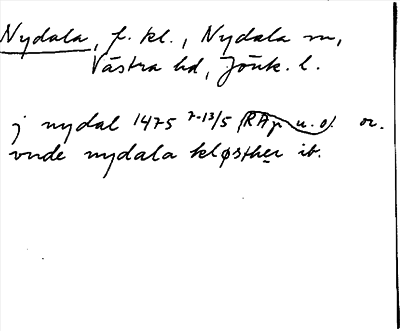 Nydala, f. kl., Nydala sn,
Västra hd, Jönk. l.
j nydal 1475 7-13/5 (RAp u. o). or.
vnde nydala kløsther ib.